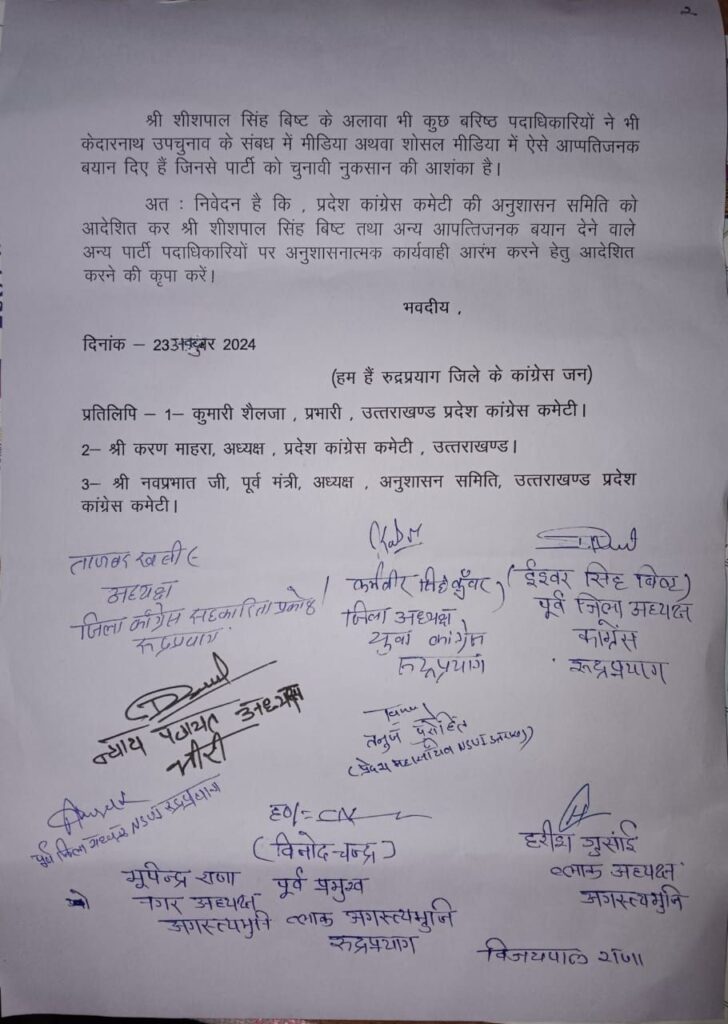 2
श्री शीशपाल सिंह बिष्ट के अलावा भी कुछ बरिष्ठ पदाधिकारियों ने भी
केदारनाथ उपचुनाव के संबध में मीडिया अथवा शोसल मीडिया में ऐसे आप्पतिजनक
बयान दिए हैं जिनसे पार्टी को चुनावी नुकसान की आशंका है।
अत : निवेदन है कि , प्रदेश कांग्रेस कमेटी की अनुशासन समिति को
आदेशित कर श्री शीशपाल सिंह बिष्ट तथा अन्य आपत्तिजनक बयान देने वाले
अन्य पार्टी पदाधिकारियों पर अनुशासनात्मक कार्यवाही आरंभ करने हेतु आदेशित
करने की कृपा करें।
भवदीय ,
दिनांक – 23 अक्टुबर 2024
(हम हैं रुद्रप्रयाग जिले के कांग्रेस जन)
प्रतिलिपि – 1– कुमारी शैलजा , प्रभारी , उत्तराखण्ड प्रदेश कांग्रेस कमेटी।
2– श्री करण माहरा, अध्यक्ष , प्रदेश कांग्रेस कमेटी , उत्तराखण्ड।
3– श्री नवप्रभात जी, पूर्व मंत्री, अध्यक्ष , अनुशासन समिति, उत्तराखण्ड प्रदेश
कांग्रेस कमेटी।
ताजबर
अध्यक्ष
जिला कांग्रेस सहकारिता प्रकोष्ठ
रुद्रप्रयाग
कर्मवीर सिंह कुँवर
जिला अध्यक्ष
युवा कांग्रेस
रुद्रप्रयाग
(ईश्वर सिंह बिष्ट)
पूर्व जिला अध्यक्ष
कांग्रेस
रुद्रप्रयाग
न्याय पंचायत अध्यक्ष
तनुज पुरोहित
(प्रदेश महासचिव NSUI
पूर्व जिला अध्यक्ष NSUI रुद्रप्रयाग
भूपेन्द्र राणा
नगर अध्यक्ष
अगस्त्यमुनि
ह०/=
(विनोद चन्द्र)
पूर्व प्रमुख
ब्लाक अगस्त्यमुनि
रुद्रप्रयाग
हरीश गुसांई
ब्लाक अध्यक्ष
अगस्त्यमुनि
विजयपाल राणा